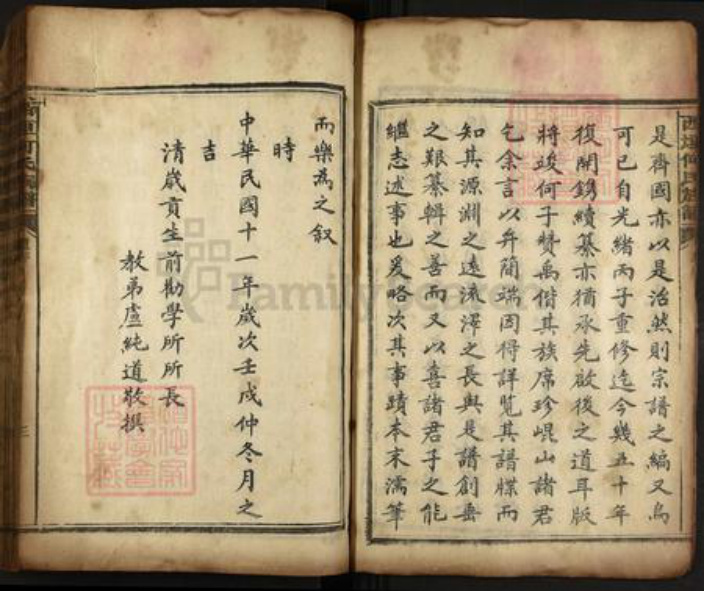 是齊國亦以是治然則宗譜之編又烏
可已自光緒丙子重修迄今幾五十年
復開鐫續纂亦猶承先啟後之道耳版
將竣何子贊禹偕其族席珍崐山諸君
乞余言以弁簡端因得詳覽其譜牒而
知其源淵之遠流澤之長與是譜創垂
之艱纂輯之善而又以喜諸君子之能
繼志述事也爰略次其事蹟本末濡筆
而樂為之叙
時
中華民國十一年歲次壬戌仲冬月之
吉
清歲貢生前勸學所所長
教弟盧純道敬撰
FamilySearch